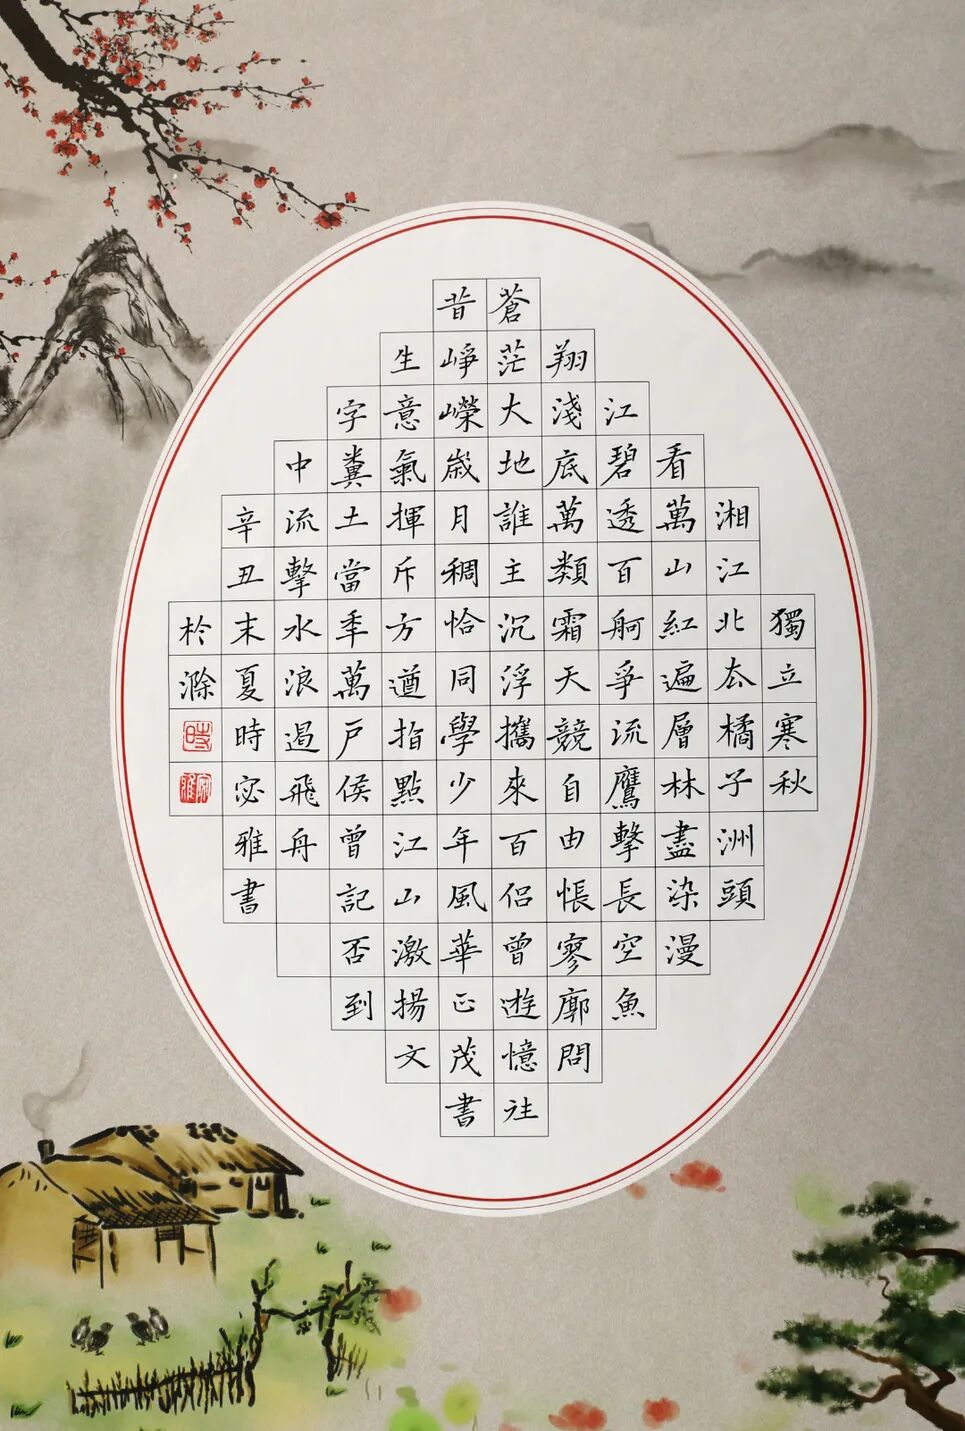 獨立寒秋
湘江北厺橘子洲頭
看萬山紅遍層林盡染漫
江碧透百舸爭流鷹擊長空魚
翔淺底萬類霜天競自由悵寥廓問
蒼茫大地誰主沉浮攜來百侶曾遊憶往
昔崢嶸歲月稠恰同學少年風華正茂書
生意氣揮斥方遒指點江山激揚文
字糞土當秊萬戶侯曾記否到
中流擊水浪遏飛舟
辛丑末夏時宓雅書
於滁
時
宓雅